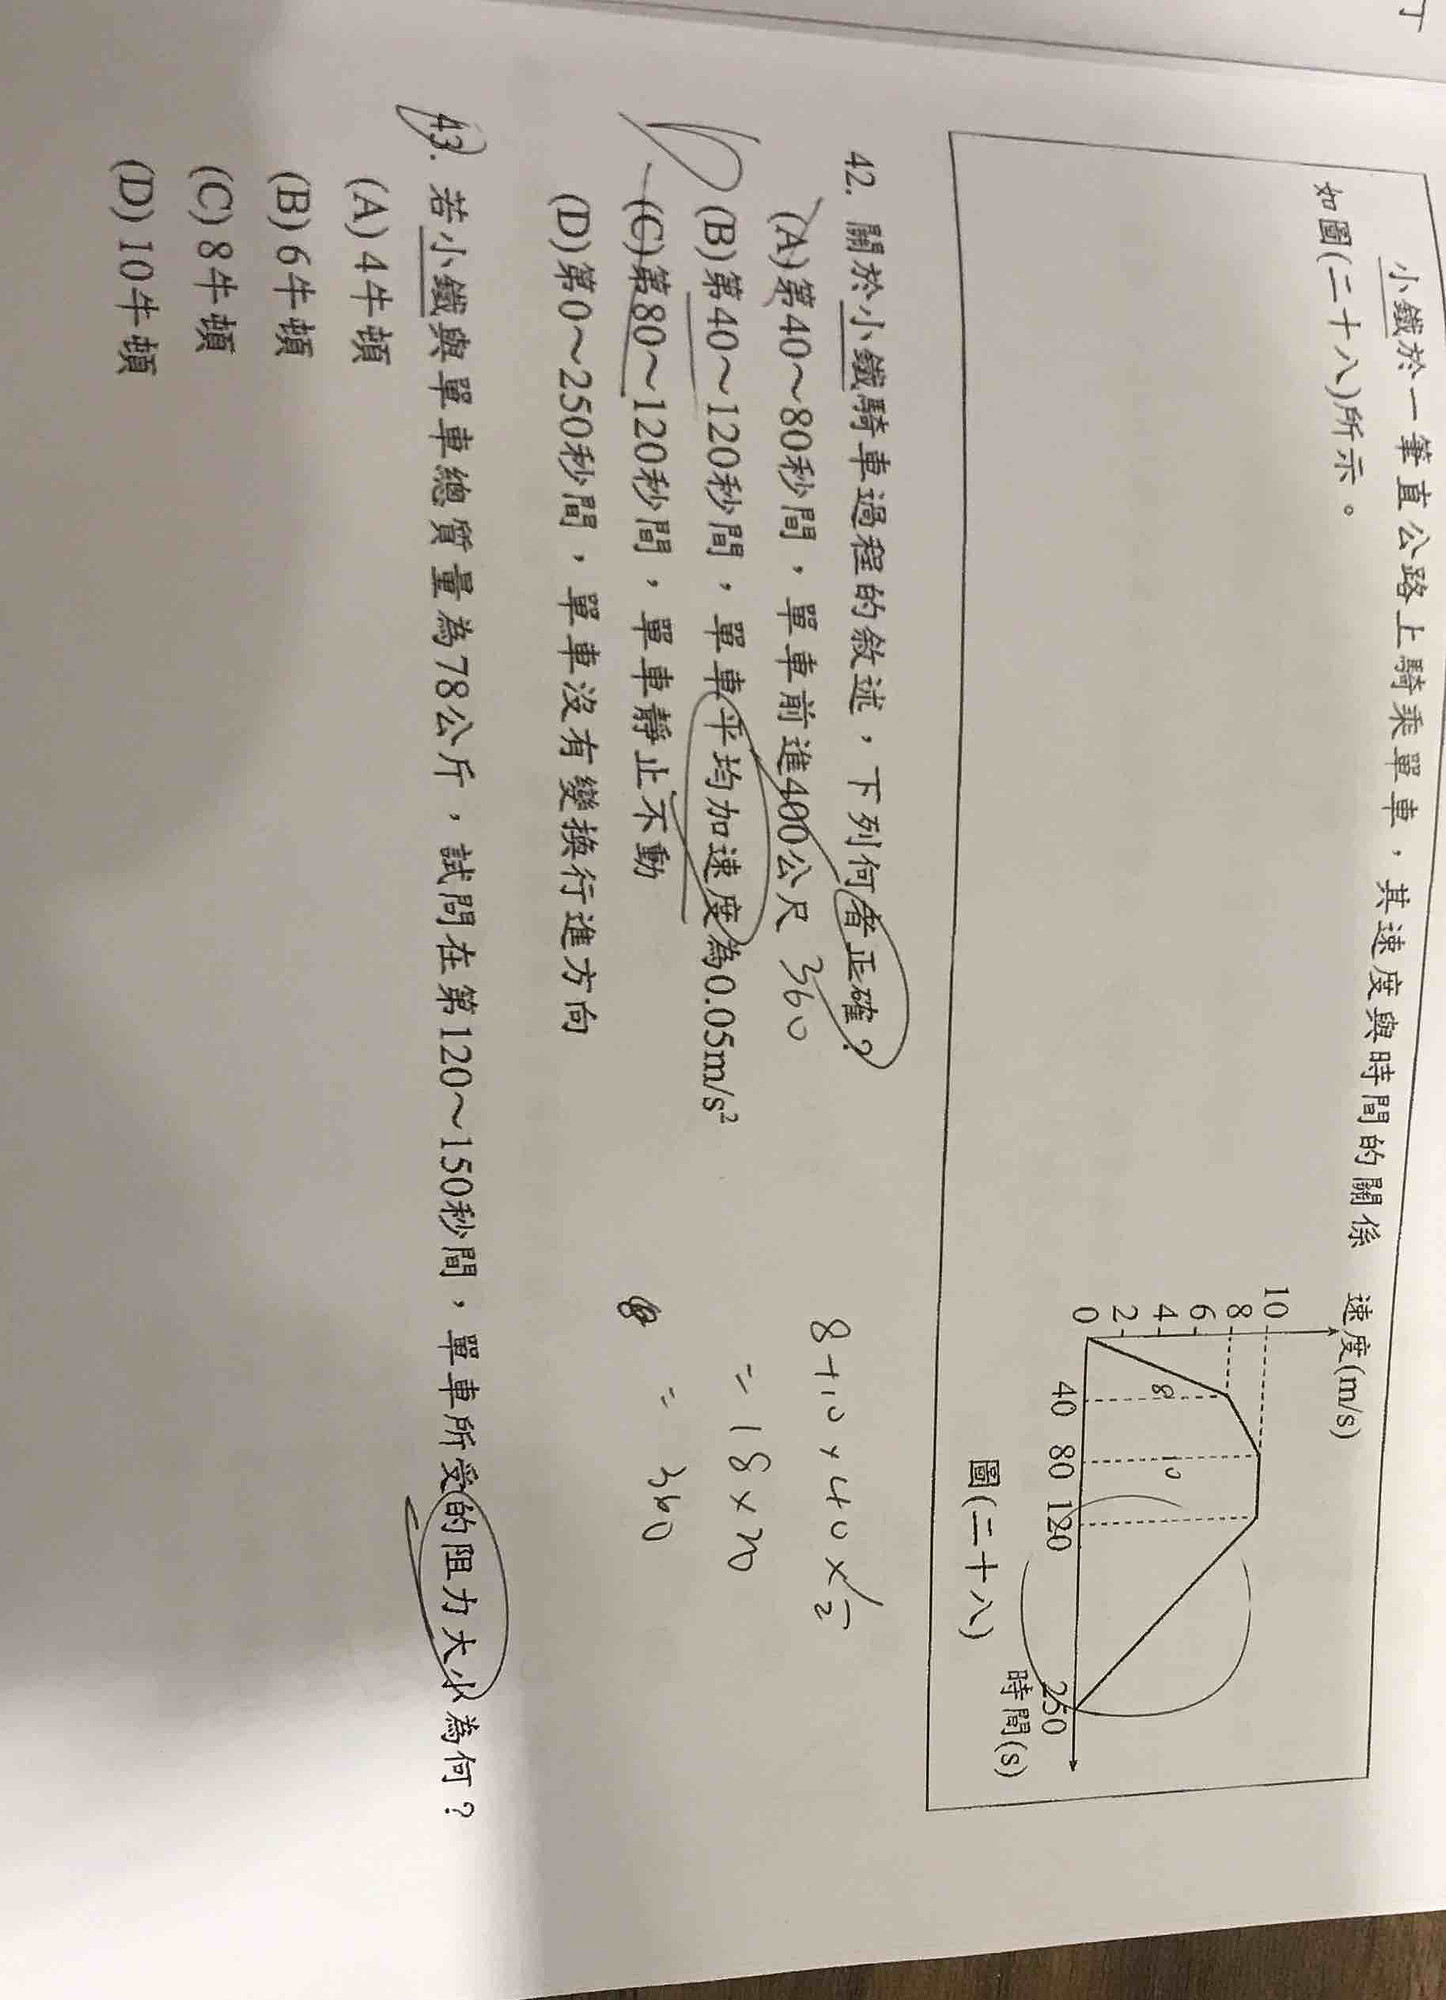 小鐵於一筆直公路上騎乘單車，其速度與時間的關係
如圖(二十八)所示。
速度(m/s)
10
8
6
4
2
0
8
10
40 80 120 250
時間(s)
圖(二十八)
42. 關於小鐵騎車過程的敘述，下列何者正確？
(A)第40～80秒間，單車前進400公尺 360
(B)第40～120秒間，單車平均加速度為0.05m/s²
(C)第80～120秒間，單車靜止不動
(D)第0～250秒間，單車沒有變換行進方向
8+10×40×1/2
=18×20
=360
43. 若小鐵與單車總質量為78公斤，試問在第120～150秒間，單車所受的阻力大小為何？
(A)4牛頓
(B)6牛頓
(C)8牛頓
(D)10牛頓